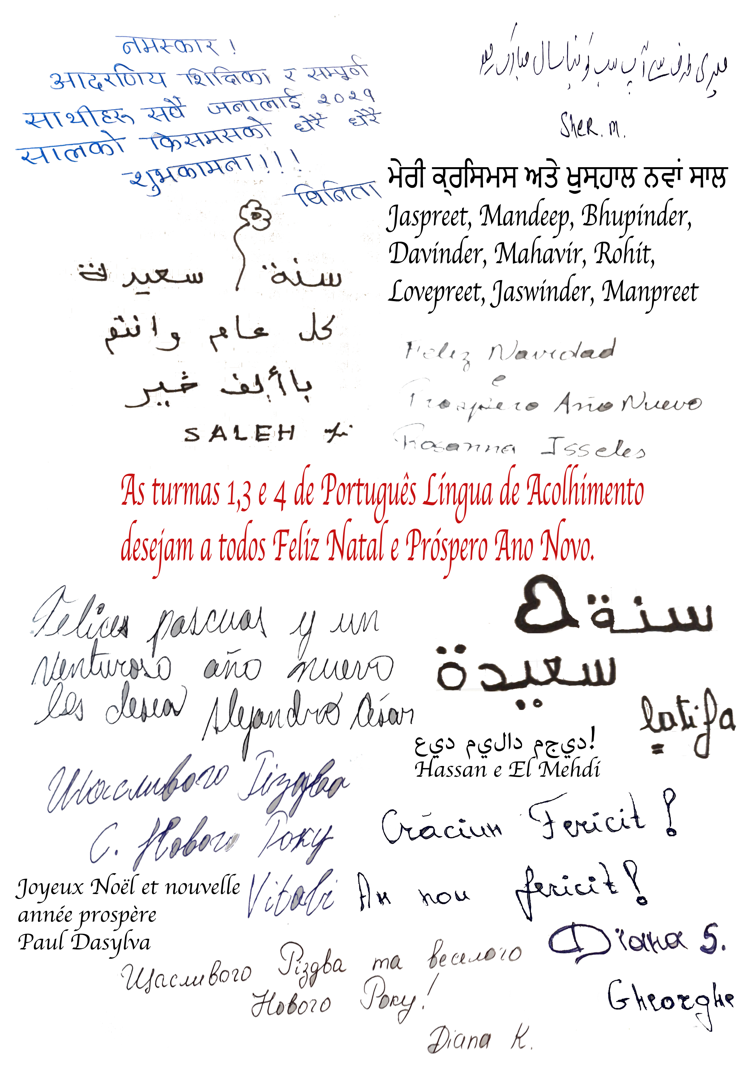 नमस्कार !
आदरणिय शिक्षिका र सम्पूर्ण
साथीहरू सवै जनालाई २०२१
सालको क्रिसमसको धेरै धेरै
शुभकामना!!!
विनिता
میری طرف سے آپ سب کو نیا سال مبارک ہو
Sher. m.
ਮੇਰੀ ਕ੍ਰਸਿਮਸ ਅਤੇ ਖੁਸ਼ਹਾਲ ਨਵਾਂ ਸਾਲ
Jaspreet, Mandeep, Bhupinder,
Davinder, Mahavir, Rohit,
Lovepreet, Jaswinder, Manpreet
سنة سعيدة
كل عام وانتم
باألف خير
SALEH
Feliz Navidad
e
Prospiero Año Nuevo
Rosanna Isseles
As turmas 1,3 e 4 de Português Língua de Acolhimento
desejam a todos Feliz Natal e Próspero Ano Novo.
Felices pascuas y un
venturoso año nuevo
les desea Alejandro César
سنة
سعيدة
latifa
عيد ميلاد مجيد!
Hassan e El Mehdi
Щасливого Різдва
С. Нового Року
Vitali
Crăciun Fericit!
An nou fericit!
Diana S.
Gheorghe
Joyeux Noël et nouvelle
année prospère
Paul Dasylva
Щасливого Різдва та веселого
Нового Року!
Diana K.